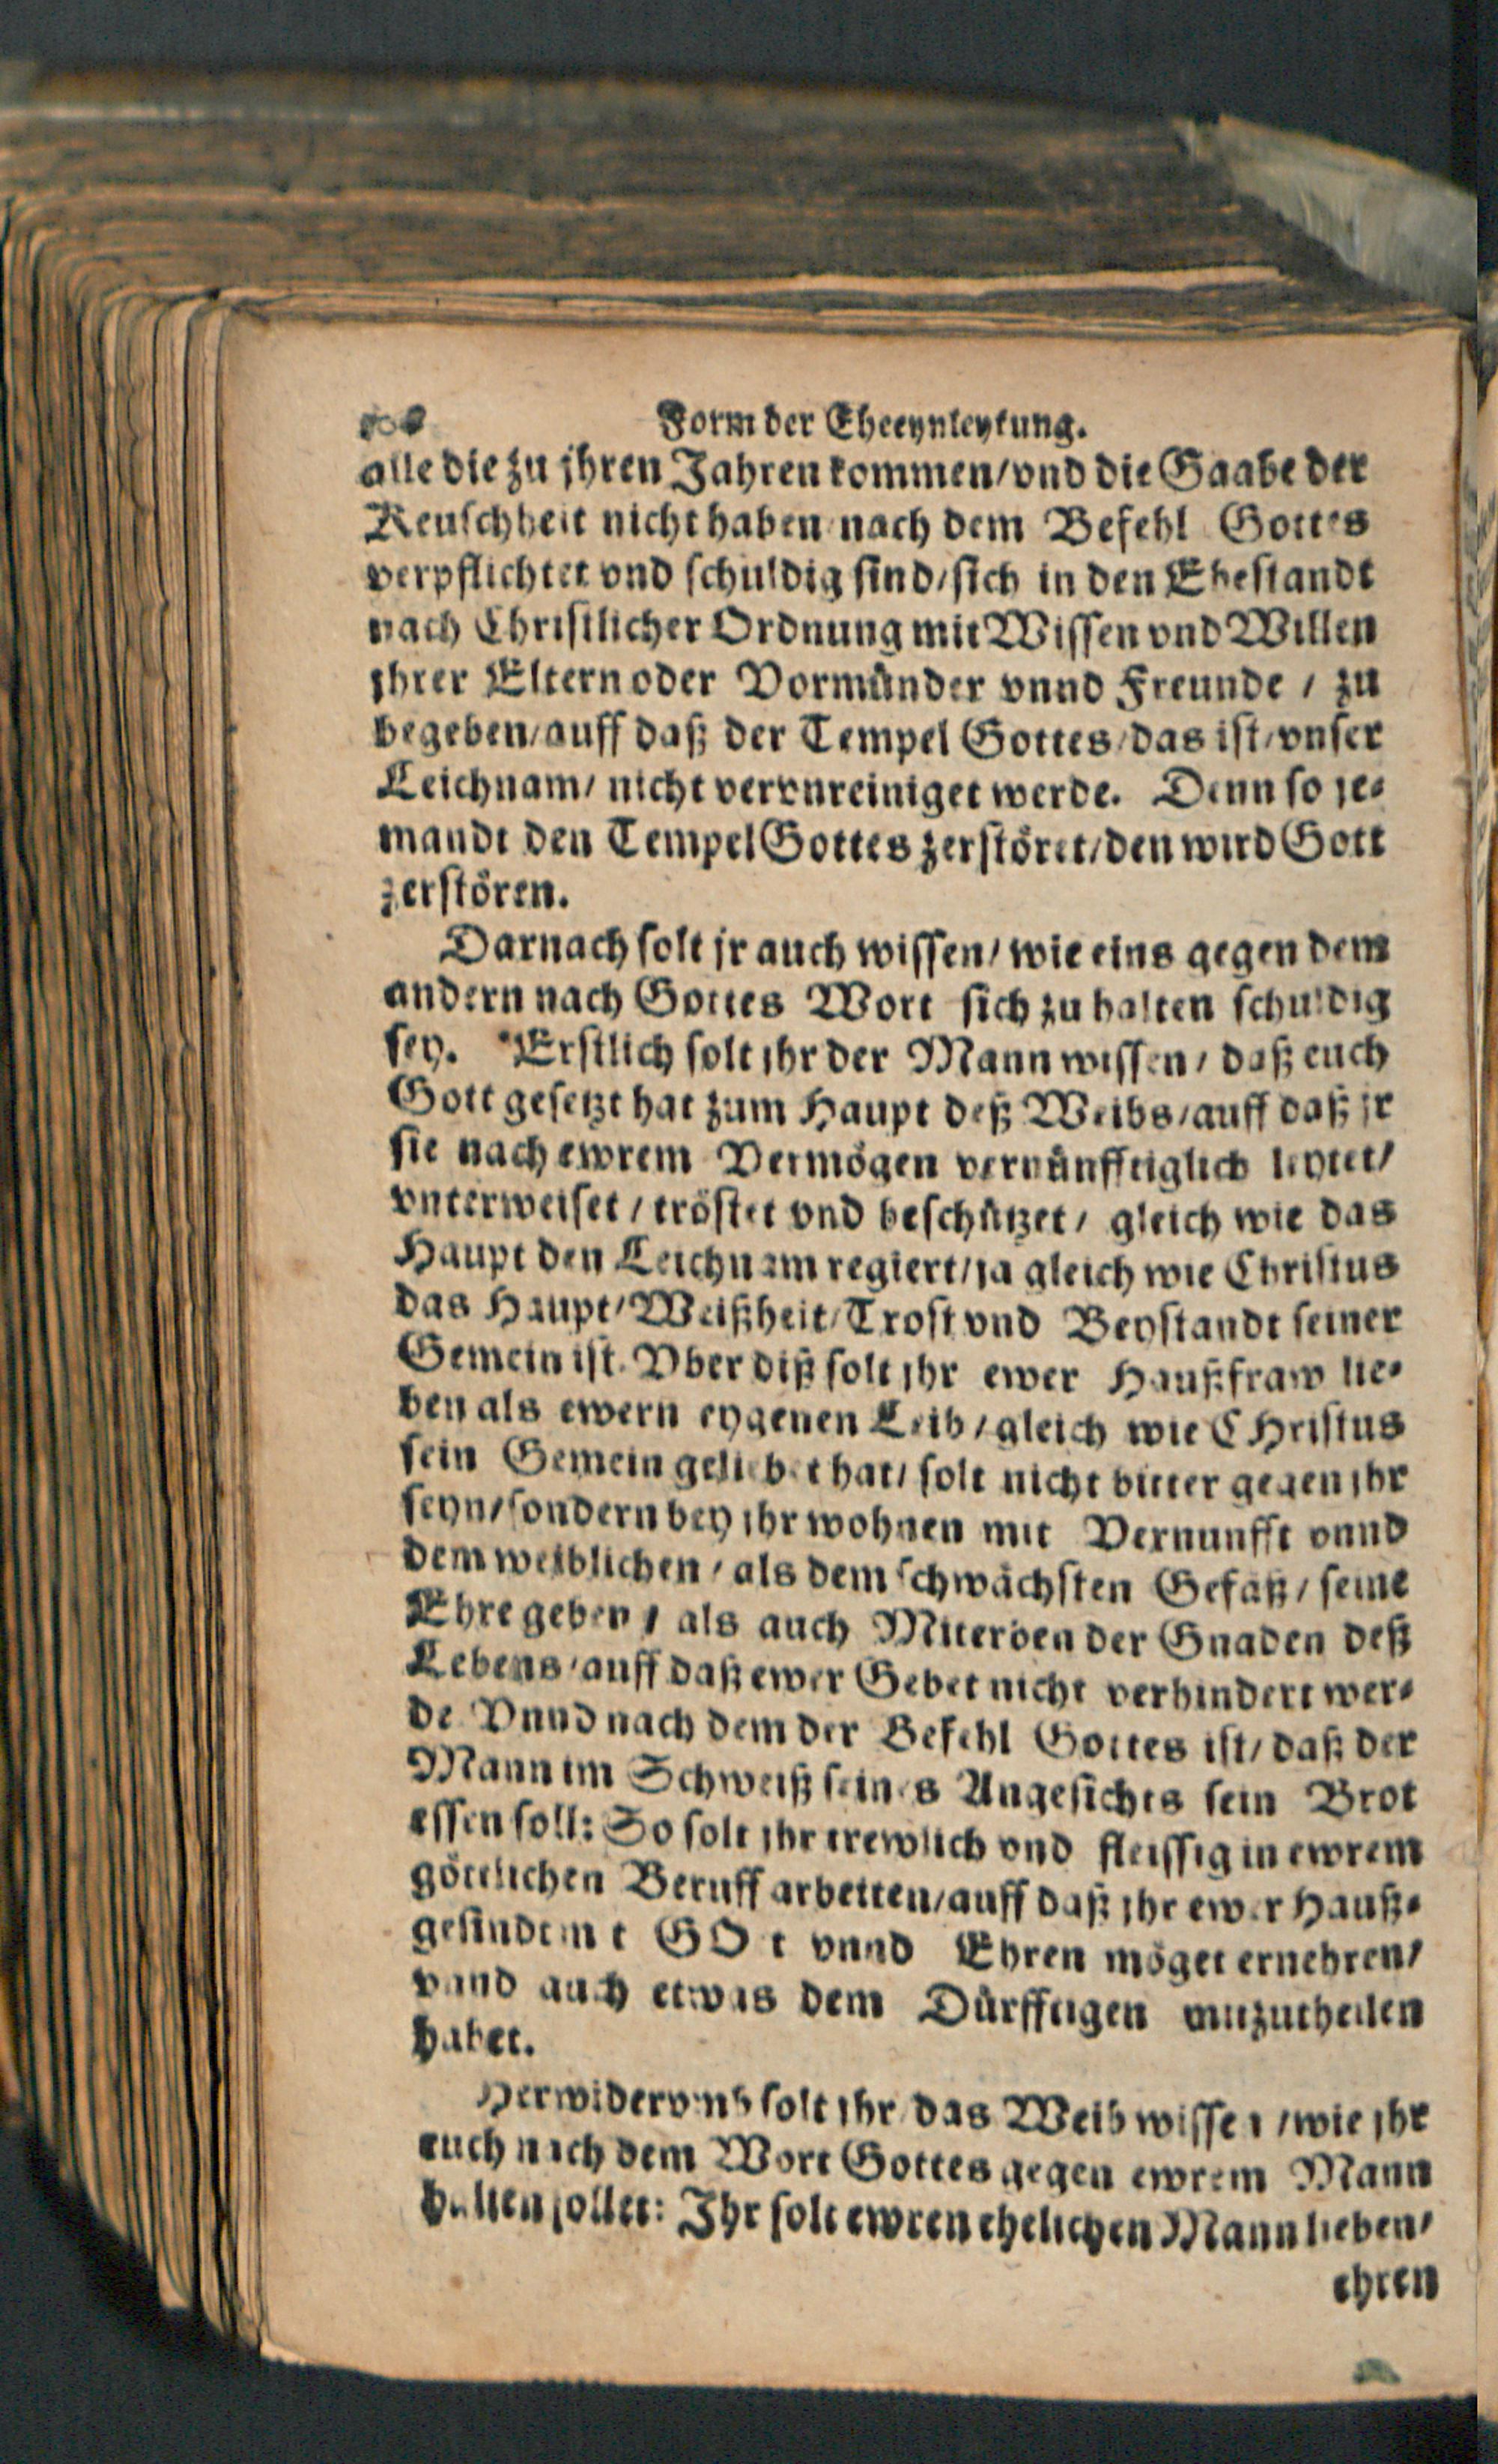 Form der Eheeynleytung.
alle die zu jhren Jahren kommen/vnd die Gaabe der
Keuschheit nicht haben/nach dem Befehl Gottes
verpflichtet vnd schuldig sind/sich in den Ehestandt
nach Christlicher Ordnung mit Wissen vnd Willen
jhrer Eltern oder Vormünder vnnd Freunde / zu
begeben/auff daß der Tempel Gottes/das ist/vnser
Leichnam/ nicht vervnreiniget werde. Denn so je-
mandt den Tempel Gottes zerstöret/den wird Gott
zerstören.
Darnach solt jr auch wissen/ wie eins gegen dem
andern nach Gottes Wort sich zu halten schuldig
sey. *Erstlich solt jhr der Mann wissen/ daß euch
Gott gesetzt hat zum Haupt deß Weibs/auff daß jr
sie nach ewrem Vermögen vernünfftiglich leytet/
vnterweiset / tröstet vnd beschützet/ gleich wie das
Haupt den Leichnam regiert/ja gleich wie Christus
das Haupt/Weißheit/Trost vnd Beystandt seiner
Gemein ist. Vber diß solt jhr ewer Haußfraw lie-
ben als ewern eygenen Leib / gleich wie CHristus
sein Gemein geliebet hat/ solt nicht bitter gegen jhr
seyn/sondern bey jhr wohnen mit Vernunfft vnnd
dem weiblichen / als dem schwächsten Gefäß/ seine
Ehre geben / als auch Miterben der Gnaden deß
Lebens/auff daß ewer Gebet nicht verhindert wer-
de Vnnd nach dem der Befehl Gottes ist/ daß der
Mann im Schweiß seines Angesichts sein Brot
essen soll: So solt jhr trewlich vnd fleissig in ewrem
göttlichen Beruff arbeiten/auff daß jhr ewer Hauß-
gesindt mit GOtt vnnd Ehren möget ernehren/
vnnd auch etwas dem Dürfftigen mitzutheilen
habet.
Herwidervmb solt jhr das Weib wissen /wie jhr
euch nach dem Wort Gottes gegen ewrem Mann
halten sollet: Jhr solt ewren ehelichen Mann lieben/
ehren